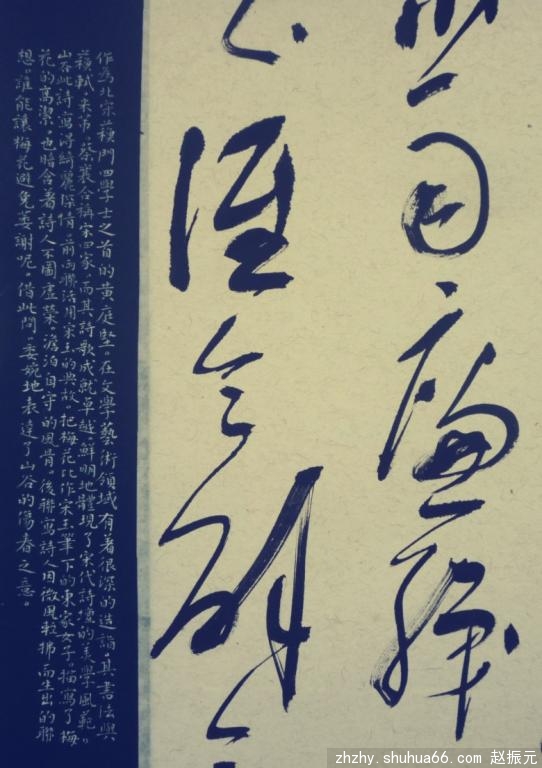 自廉纖
誰令解
作為北宋蘇門四學士之首的黃庭堅。在文學藝術領域有着很深的造詣。其書法與
蘇軾、米芾、蔡襄合稱宋四家。而其詩歌成就卓越。鮮明地體現了宋代詩壇的美學風範。
山谷此詩寫得綺麗深情。前兩聯活用宋玉的典故。把梅花比作宋玉筆下的東家女子。描寫了梅
花的高潔。也暗含著詩人不圖虛榮。澹泊自守的風骨。後聯寫詩人因微風輕拂而生出的聯
想。誰能讓梅花避免萎謝呢。借此問。委婉地表達了山谷的傷春之意。
zhzhy.shuhua66.com 赵振元